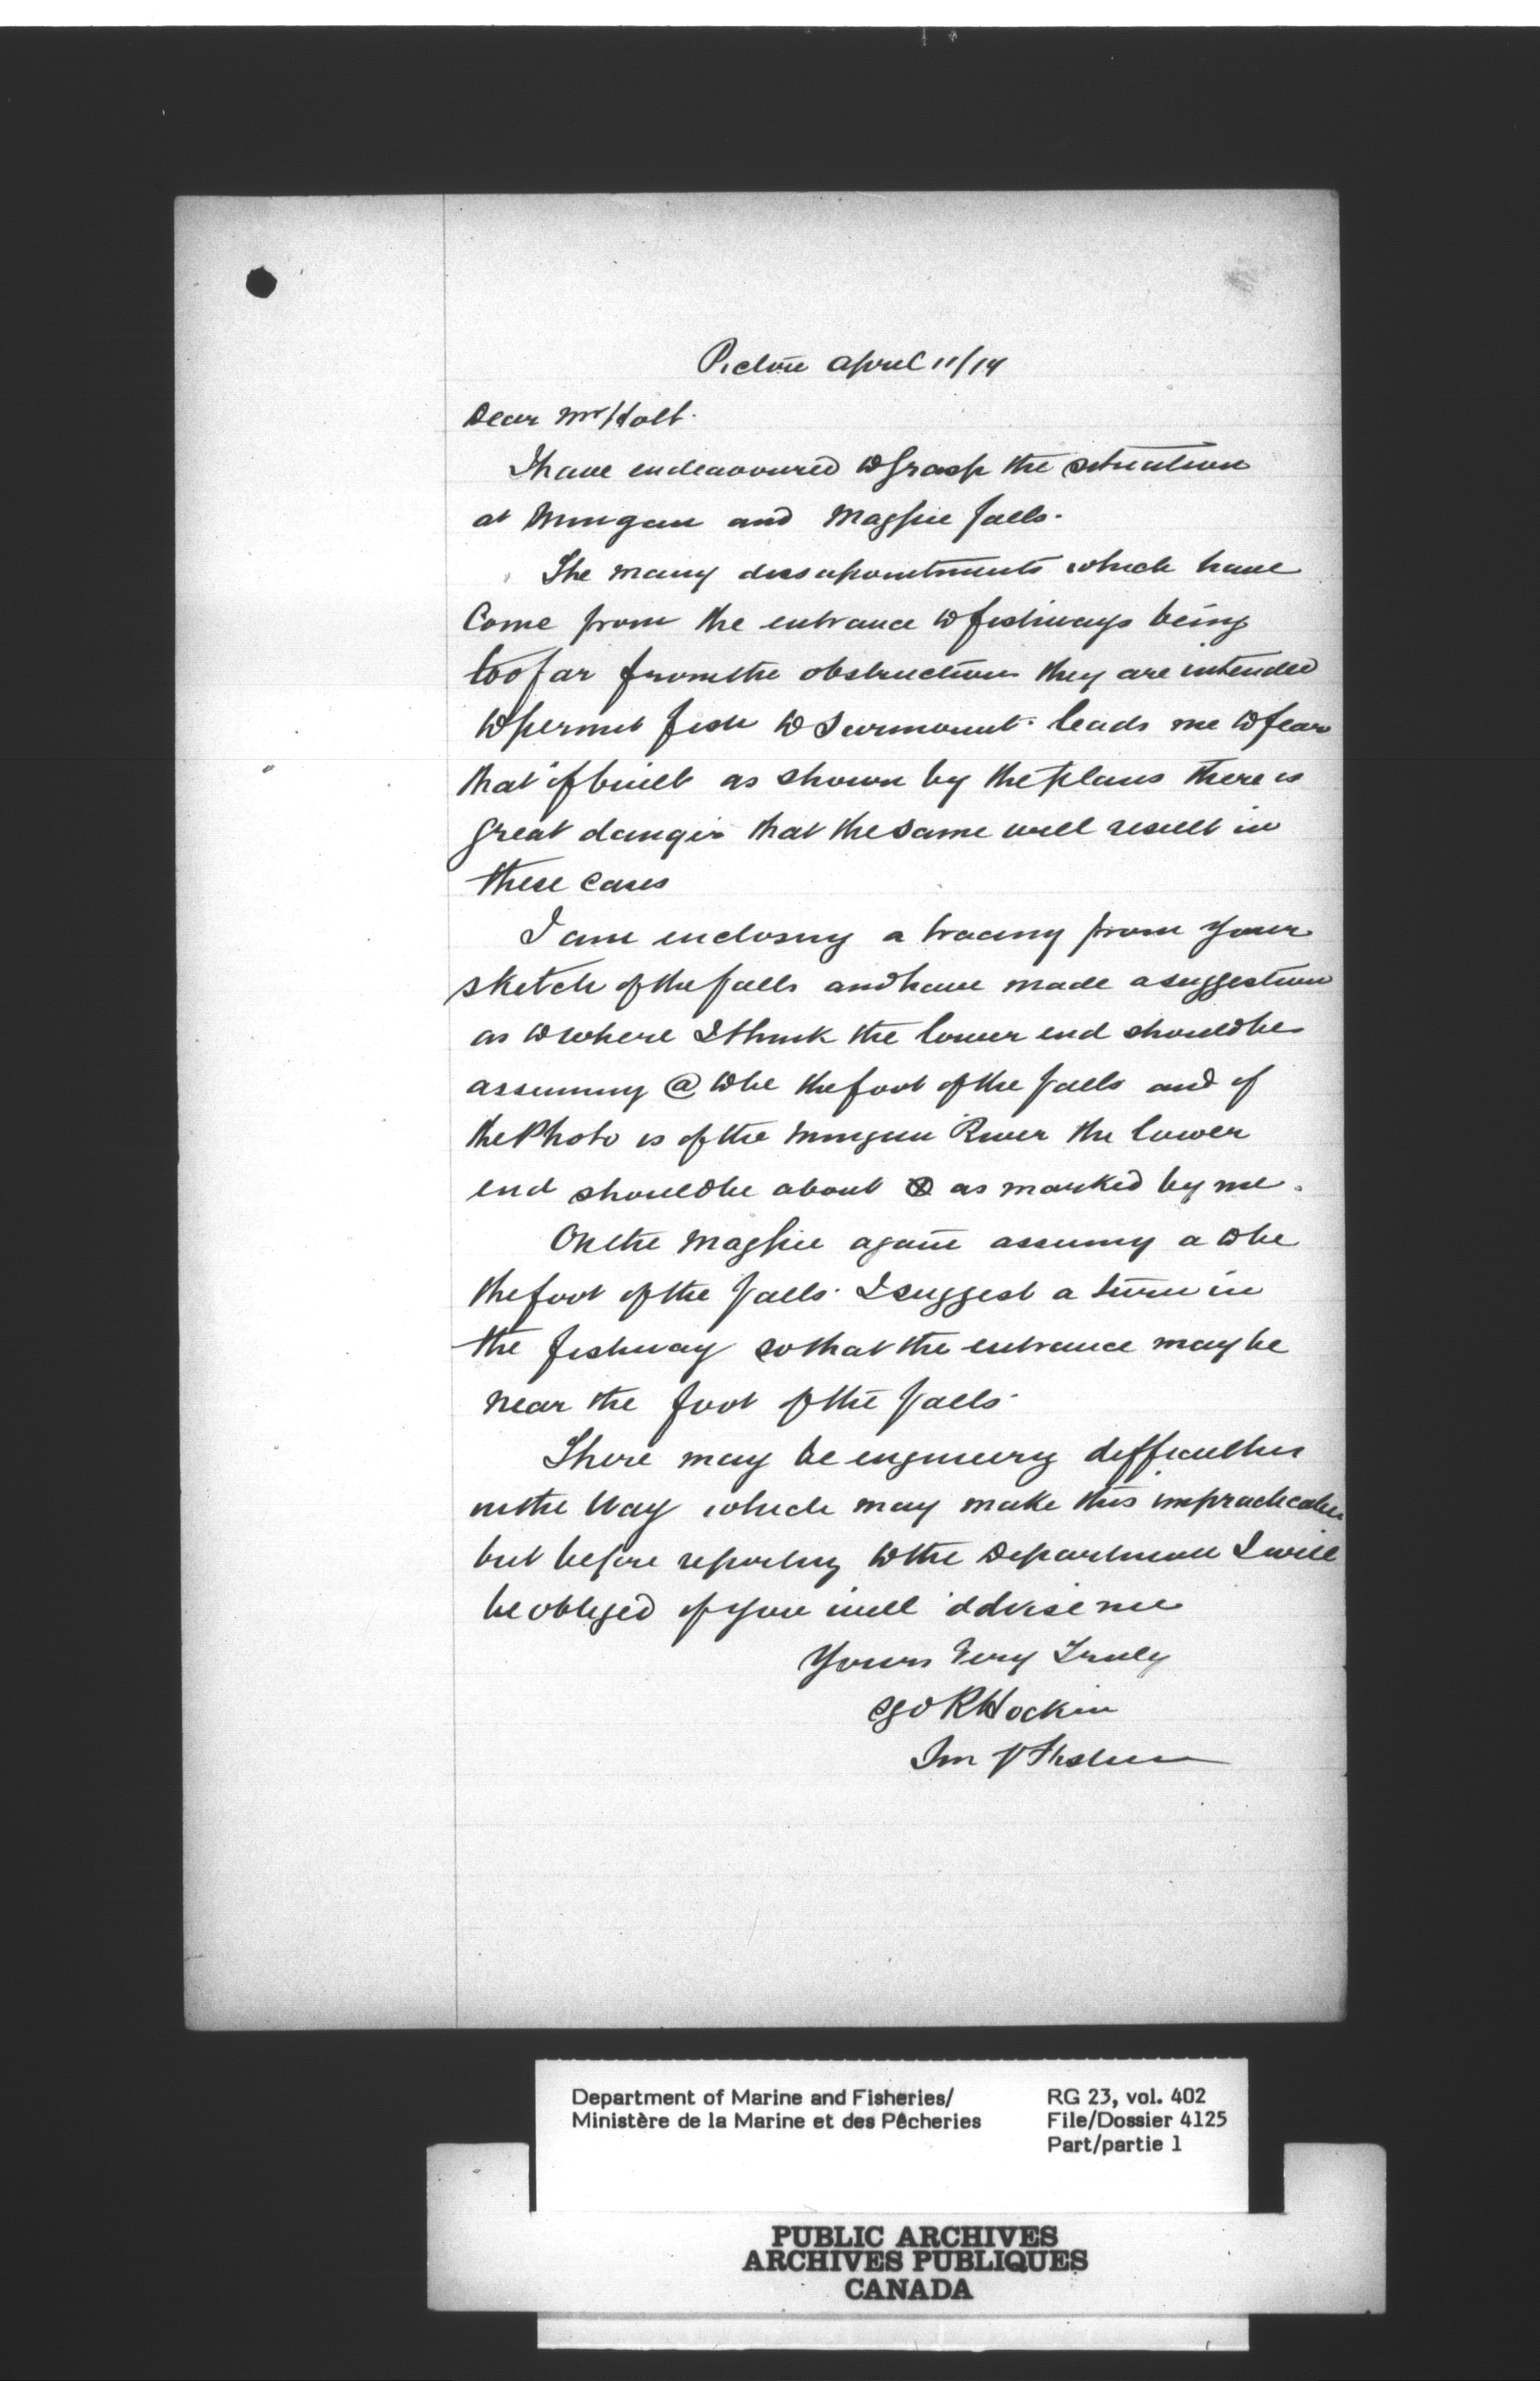 Pictou April 11/14
Dear Mr Holt.
I have endeavoured to grasp the situation
at Mingan and Magpie falls.
The many dissapointments which have
Come from the entrance to fishways being
too far from the obstructions they are intended
to permit fish to surmount. leads me to fear
that if built as shown by the plans there is
great danger that the same will result in
these cases
I am enclosing a tracing from your
sketch of the falls and have made a suggestion
as to where I think the lower end should be
assuming @ to be the foot of the falls and if
the Photo is of the Mingan River the lower
end should be about ⊗ as marked by me.
On the Magpie again assuming a to be
the foot of the falls. I suggest a turn in
the fishway so that the entrance may be
near the foot of the falls.
There may be engineering difficulties
in the way which may make this impracticable
but before reporting to the Department I will
be obliged if you will advise me
Yours Very Truly
Geo R Hockin
Department of Marine and Fisheries/
Ministère de la Marine et des Pêcheries
RG 23, vol. 402
File/Dossier 4125
Part/partie 1
PUBLIC ARCHIVES
ARCHIVES PUBLIQUES
CANADA